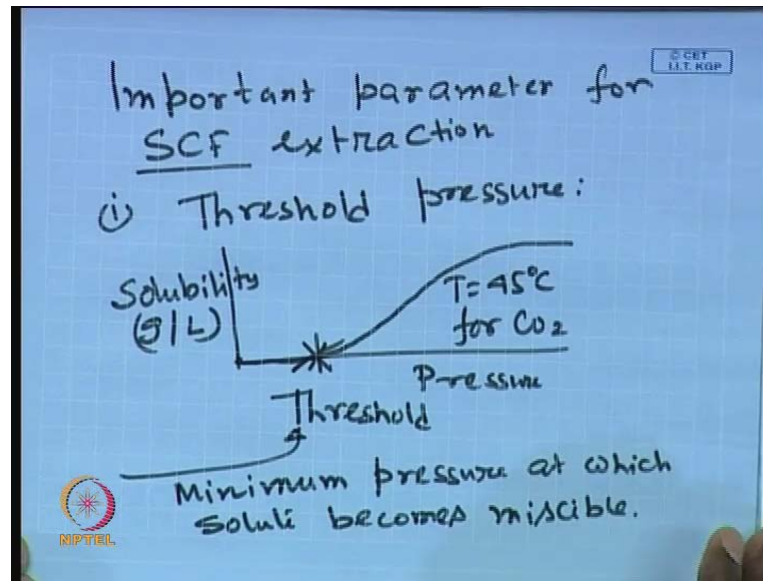 © CET
I.I.T. KGP
Important parameter for
SCF extraction
(i) Threshold pressure:
Solubility
(g/L)
T=45°C
for CO2
Pressure
Threshold
Minimum pressure at which
solute becomes miscible.
NPTEL